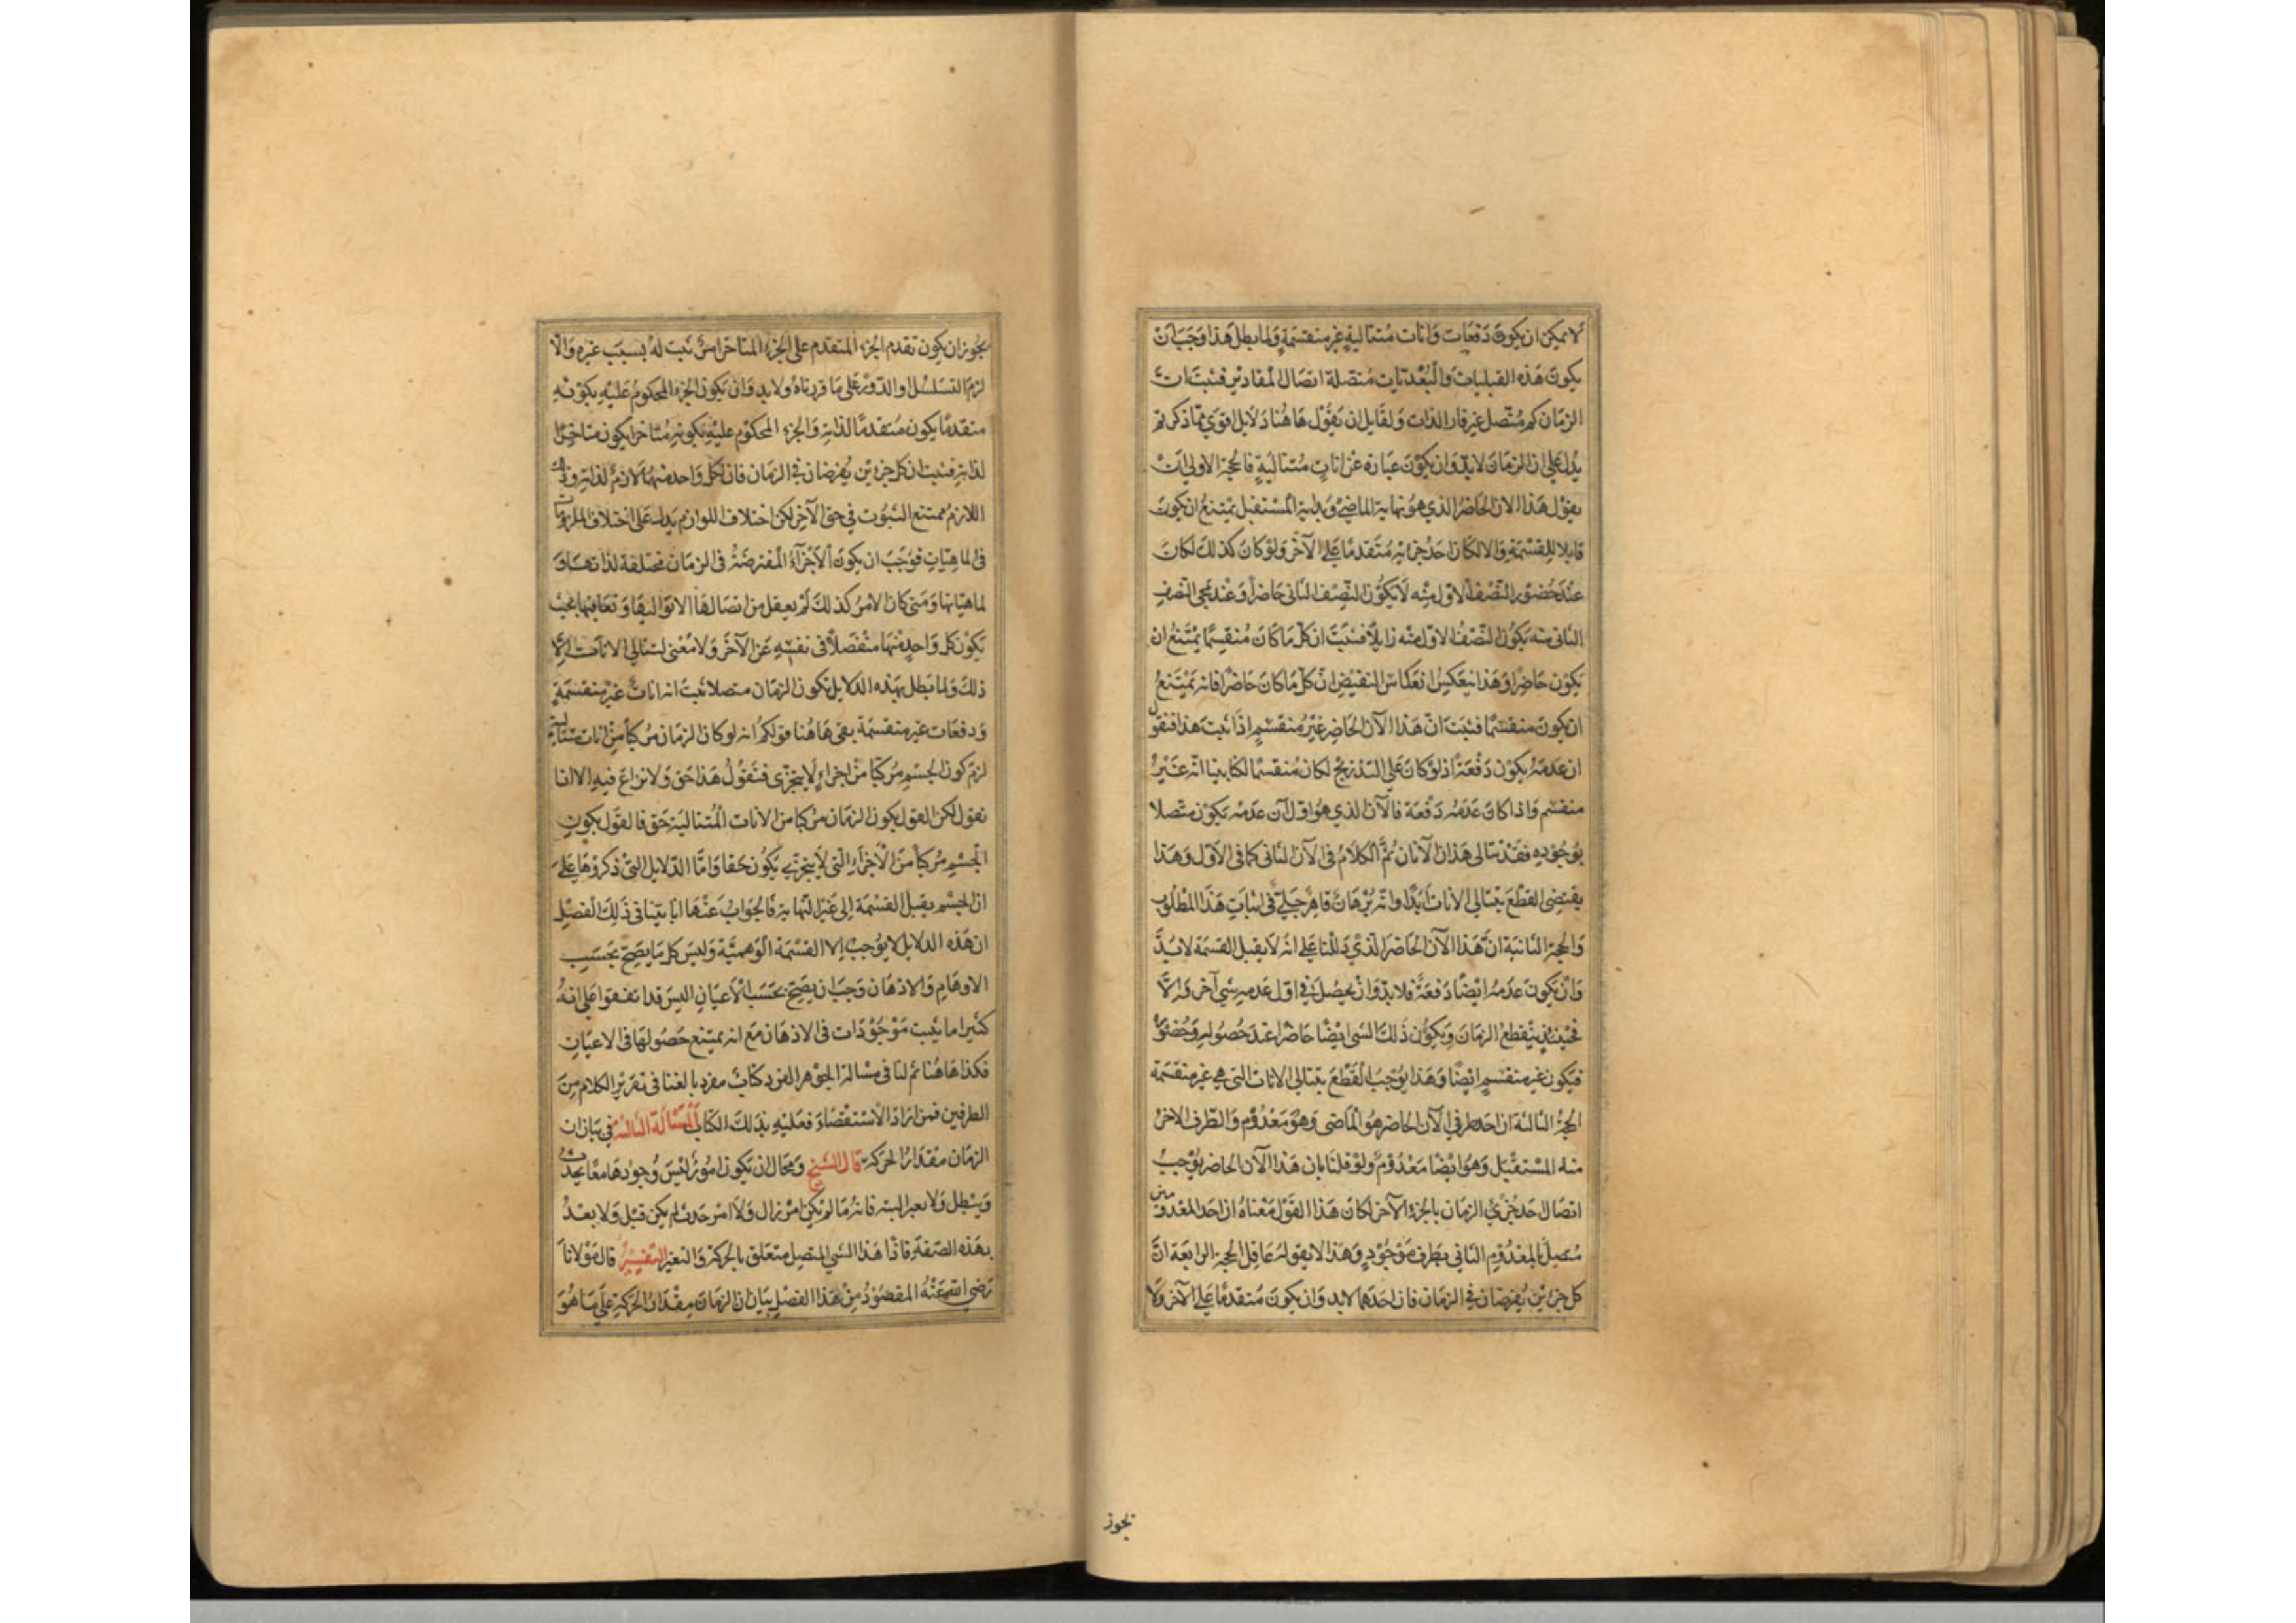 لا يمكن ان يكون دفعات وانات متتالية غير منقسمة ولما بطل هذا وجب ان
يكون هذه القبليات والبعديات متصلة اتصال المقادير فثبت ان
الزمان كم متصل غير قار الذات ولقايل ان يقول هاهنا دلايل اقوى مما ذكرتم
يدل على ان الزمان لابد وان يكون عبارة عن انات متتالية فالحجة الاولى ان
يقول هذا الان الحاضر الذي هو نهاية الماضي وبداية المستقبل يمتنع ان يكون
قابلا للقسمة والا لكان احد جزئيه متقدما على الآخر ولو كان كذلك لكان
عند حضور النصف الاول منه لا يكون النصف الثاني حاضرا وعند مجي النصف
الثاني منه يكون النصف الاول منه زايلا فثبت ان كل ما كان منقسما يمتنع ان
يكون حاضرا وهذا ينعكس انعكاس النقيض ان كل ما كان حاضرا فانه يمتنع
ان يكون منقسما فثبت ان هذا الآن الحاضر غير منقسم اذا ثبت هذا فنقول
ان عدمه يكون دفعة اذ لو كان على التدريج لكان منقسما لكنا بينا انه غير
منقسم واذا كان عدمه دفعة فالآن الذي هو اول آن عدمه يكون متصلا
بوجوده فقد تتالى هذان الآنان ثم الكلام في الآن الثاني كما في الاول وهذا
يقتضي القطع بتتالي الانات ابدا وانه برهان قاهر جلي في اثبات هذا المطلوب
والحجة الثانية ان هذا الآن الحاضر الذي دللنا على انه لا يقبل القسمة لابد
وان يكون عدمه ايضا دفعة فلابد وان يحصل في اول عدمه شي آخر والا
فحينئذ ينقطع الزمان ويكون ذلك الشي ايضا حاضرا عند حصوله وحضوره
فيكون غير منقسم ايضا وهذا يوجب القطع بتتالي الانات التي هي غير منقسمة
الحجة الثالثة ان احد طرفي الآن الحاضر هو الماضي وهو معدوم والطرف الاخر
منه المستقبل وهو ايضا معدوم ولو قلنا بان هذا الآن الحاضر يوجب
اتصال احد جزئي الزمان بالجزء الآخر لكان هذا القول معناه ان احد المعدومين
متصل بالمعدوم الثاني بطرف موجود وهذا لا يقوله عاقل الحجة الرابعة ان
كل جزئين يفرضان في الزمان فان احدهما لابد وان يكون متقدما على الآخر ولا
يجوز
يجوز ان يكون تقدم الجزء المتقدم على الجزء المتاخر امر ثبت له بسبب غيره والا
لزم التسلسل او الدور على ما قررناه ولابد وان يكون الجزء المحكوم عليه بكونه
متقدما يكون متقدما لذاته والجزء المحكوم عليه بكونه متاخرا يكون متاخرا
لذاته فثبت ان كل جزئين يفرضان في الزمان فان لكل واحد منهما لازم لذاته وذلك
اللازم ممتنع الثبوت في حق الآخر لكن اختلاف اللوازم يدل على اختلاف الملزومات
في الماهيات فوجب ان يكون الاجزاء المفترضة في الزمان مختلفة لذاتها و
لماهياتها ومتى كان الامر كذلك لم يعقل من اتصالها الا تواليها وتعاقبها بحيث
يكون كل واحد منها منفصلا في نفسه عن الآخر ولا معنى لتتالي الانات الا
ذلك ولما بطل بهذه الدلايل كون الزمان متصلا ثبت انه انات غير منقسمة
ودفعات غير منقسمة بقى هاهنا قولكم انه لو كان الزمان مركبا من انات متتالية
لزم كون الجسم مركبا من اجزاء لا يتجزى فنقول هذا حق ولا نزاع فيه الا انا
نقول لكن القول بكون الزمان مركبا من الانات المتتالية حق فالقول بكون
الجسم مركبا من الاجزاء التي لا يتجزى يكون حقا واما الدلايل التي ذكروها على
ان الجسم يقبل القسمة الى غير النهاية فالجواب عنها انا بينا في ذلك الفصل
ان هذه الدلايل لا يوجب الا القسمة الوهمية وليس كل ما يصح بحسب
الاوهام والاذهان وجب ان يصح بحسب الاعيان اليس قد اتفقوا على انه
كثيرا ما يثبت موجودات في الاذهان مع انه يمتنع حصولها في الاعيان
فكذا هاهنا ثم لنا في مسالة الجوهر الفرد كتاب مفرد بالغنا في تقرير الكلام من
الطرفين فمن اراد الاستقصاء فعليه بذلك الكتاب المسألة الثالثة في بيان ان
الزمان مقدار الحركة قال الشيخ ومحال ان يكون امور ليس وجودها معا يحدث
ويبطل ولا يتغير البتة فانه ما لم يكن امر زال ولا امر حدث لم يكن قبل ولا بعد
بهذه الصفة فاذا هذا الشي المتصل متعلق بالحركة والتغير التفسير قال مولانا
رضي الله عنه المقصود من هذا الفصل بيان ان الزمان مقدار الحركة على ما هو